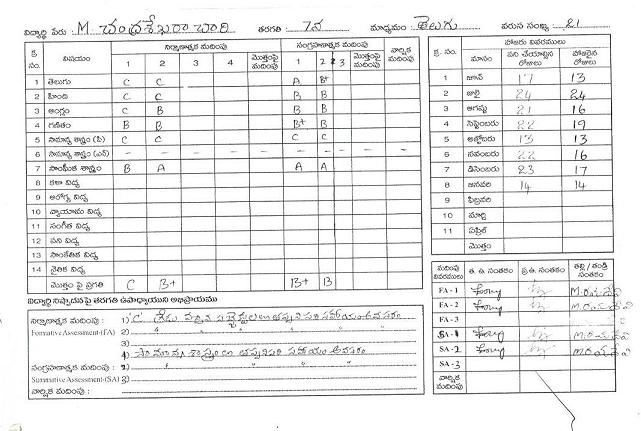 విద్యార్థి పేరు : M. చంద్రశేఖరా చారి తరగతి : 7వ మాధ్యమం : తెలుగు వరుస సంఖ్య : 21
క్ర. సం. విషయం నిర్మాణాత్మక మదింపు సంగ్రహణాత్మక మదింపు వార్షిక మదింపు
1 2 3 4 మొత్తంపై మదింపు 1 2 3 మొత్తంపై మదింపు
1 తెలుగు C C A B+
2 హింది C C B B
3 ఆంగ్లం C B B B
4 గణితం B B B+ B
5 సామాన్య శాస్త్రం (పి) C C C C
6 సామాన్య శాస్త్రం (ఎన్) - - - -
7 సాంఘీక శాస్త్రం B A A A
8 కళా విద్య
9 ఆరోగ్య విద్య
10 వ్యాయామ విద్య
11 సంగీత విద్య
12 పని విద్య
13 సాంకేతిక విద్య
14 నైతిక విద్య
మొత్తం పై ప్రగతి C B+ B+ B
క్ర. సం. హాజరు వివరములు
మాసం పని చేయాల్సిన రోజులు హాజరైన రోజులు
1 జూన్ 17 13
2 జులై 24 24
3 ఆగష్టు 21 16
4 సెప్టెంబరు 22 19
5 అక్టోబరు 13 13
6 నవంబరు 22 16
7 డిసెంబరు 23 17
8 జనవరి 14 14
9 ఫిబ్రవరి
10 మార్చి
11 ఏప్రిల్
మొత్తం
విద్యార్థి నిష్పాదనపై తరగతి ఉపాధ్యాయుని అభిప్రాయము
నిర్మాణాత్మక మదింపు : 1) C గ్రేడు వచ్చిన సబ్జెక్టులలో అప్పుని సహాయం అవసరం
Formative Assessment-(FA) 2)
3)
4) సామాన్య శాస్త్రంలో సహాయం అవసరం
సంగ్రహణాత్మక మదింపు : 1)
Summative Assessment-(SA) 2)
వార్షిక మదింపు :
మదింపు వివరములు త. ఉ. సంతకం ప్ర.ఉ. సంతకం తల్లి / తండ్రి సంతకం
FA - 1
FA - 2
FA - 3
SA - 1
SA - 2
SA - 3
వార్షిక మదింపు